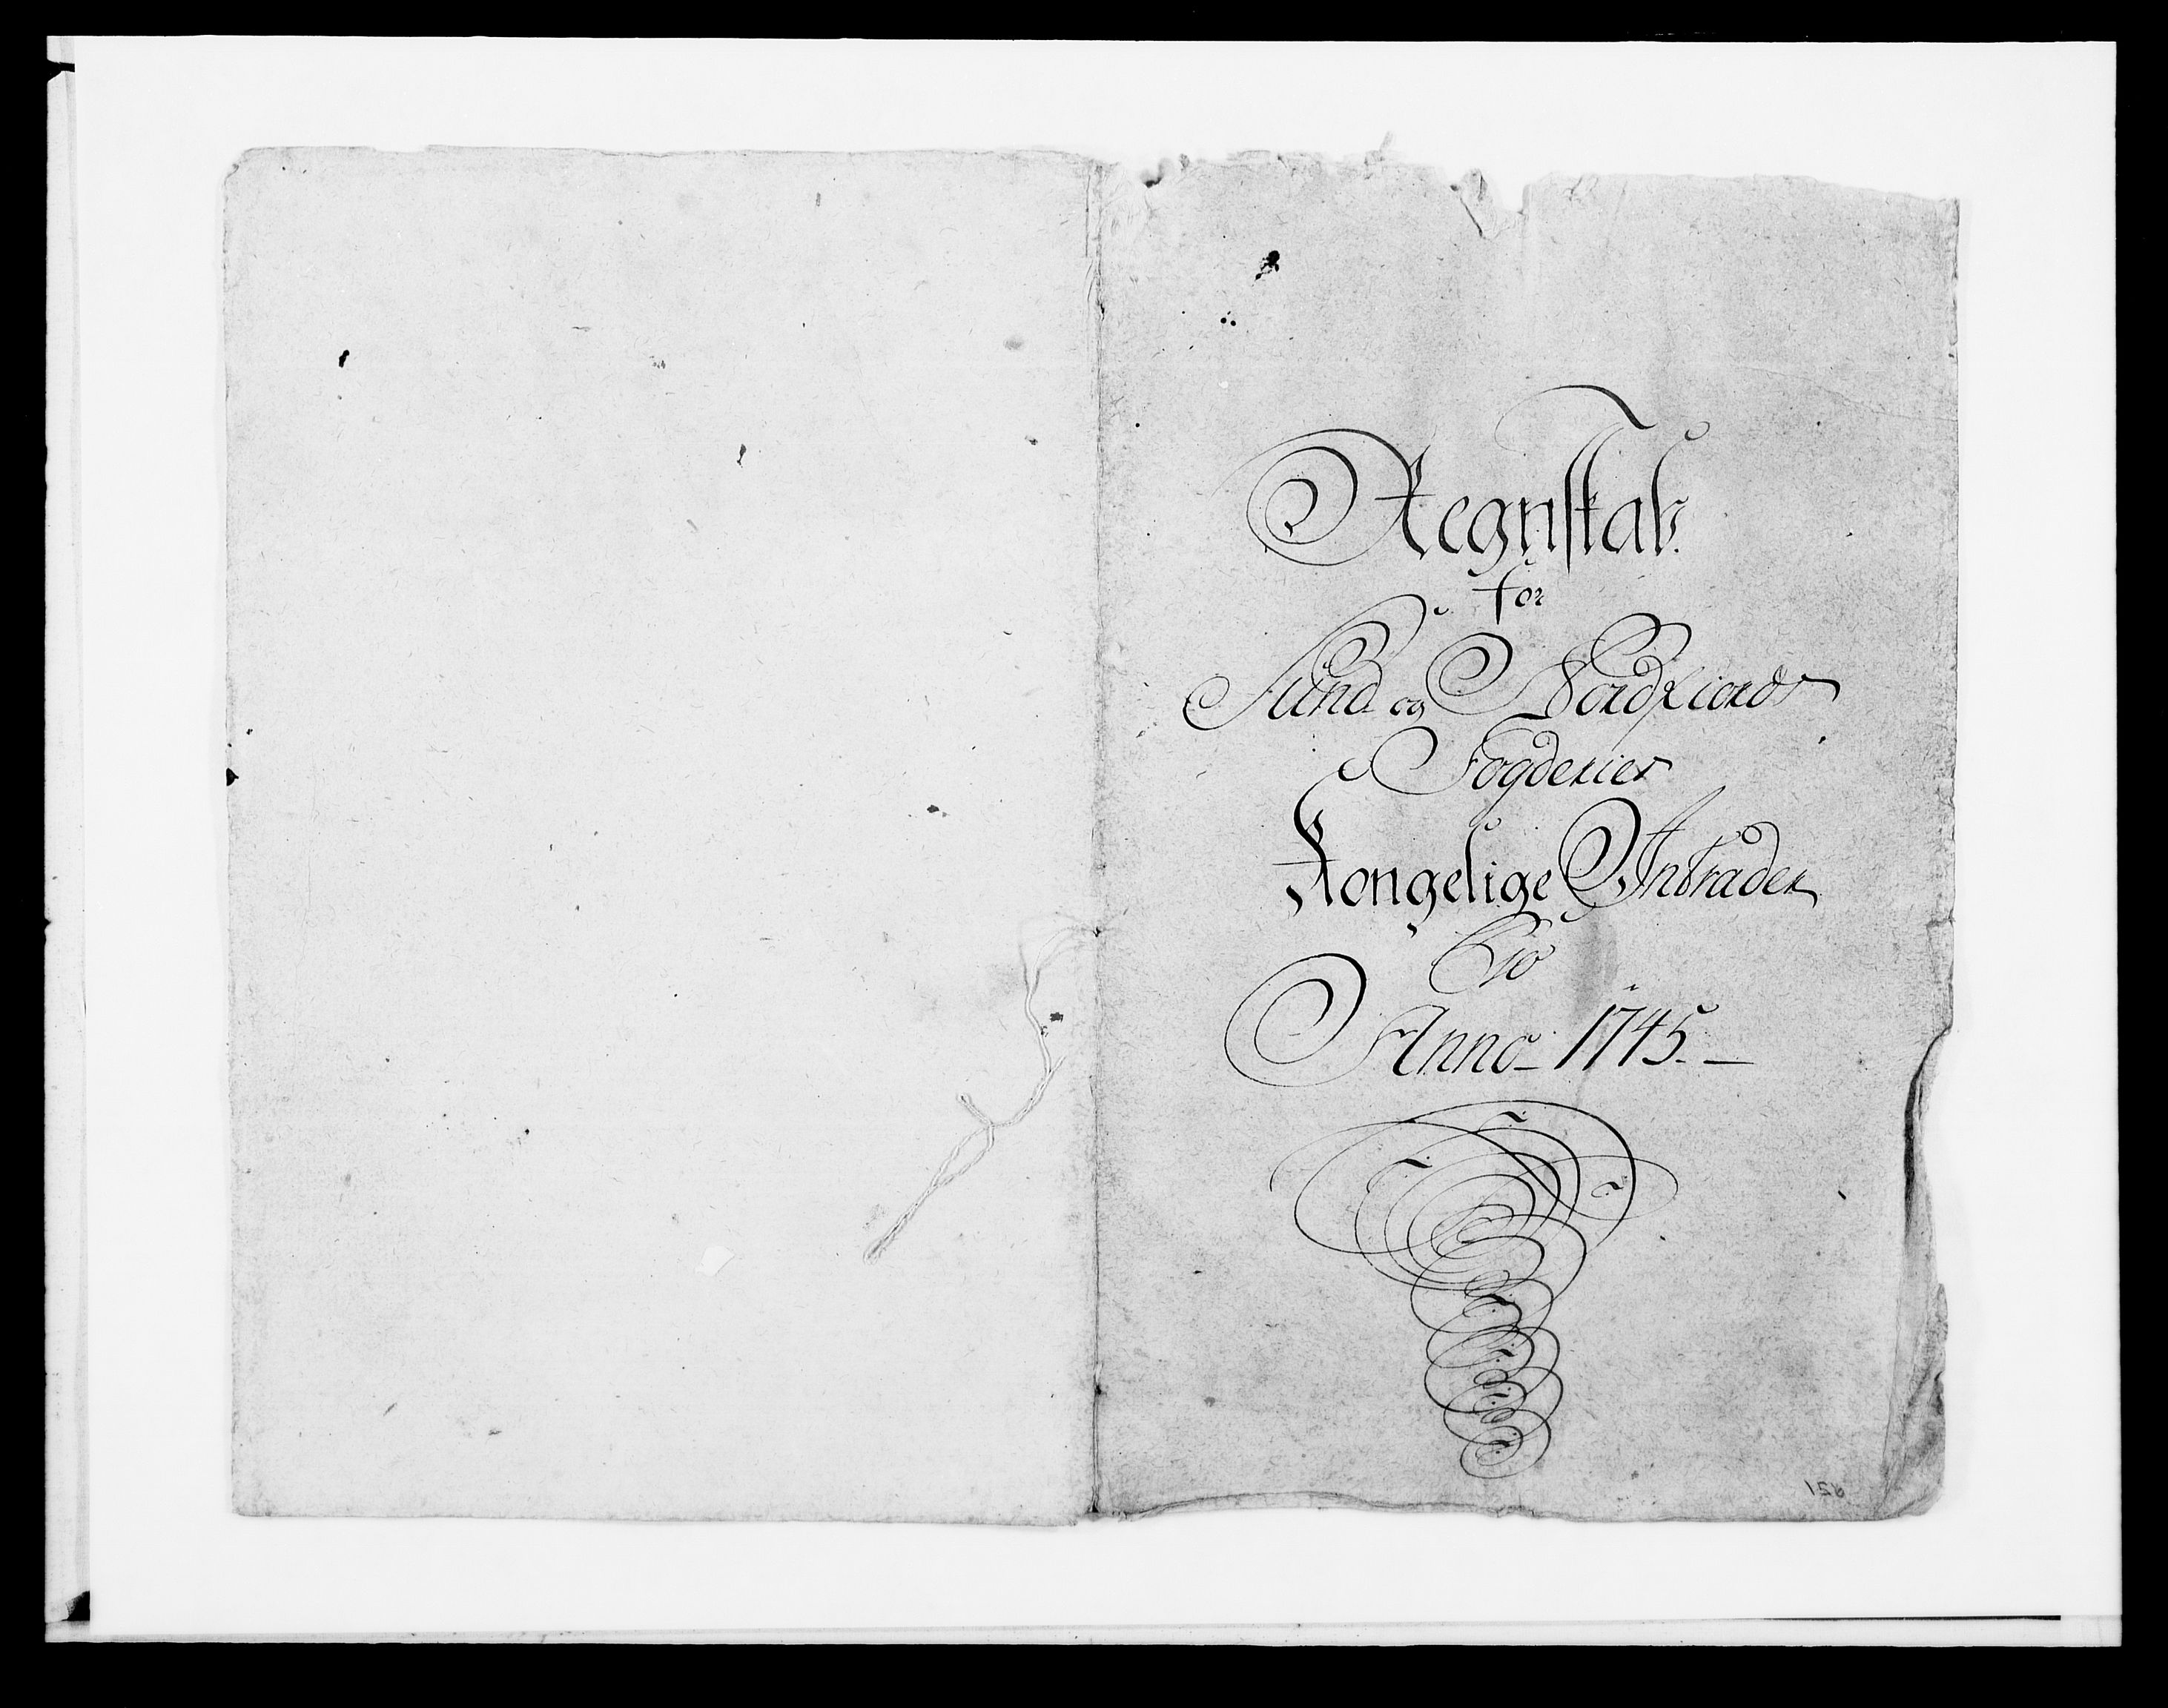 Regnskab
for
Sund og Nordfiords
Fogderier
Kongelige Intrader
Pro
Anno 1745.
156